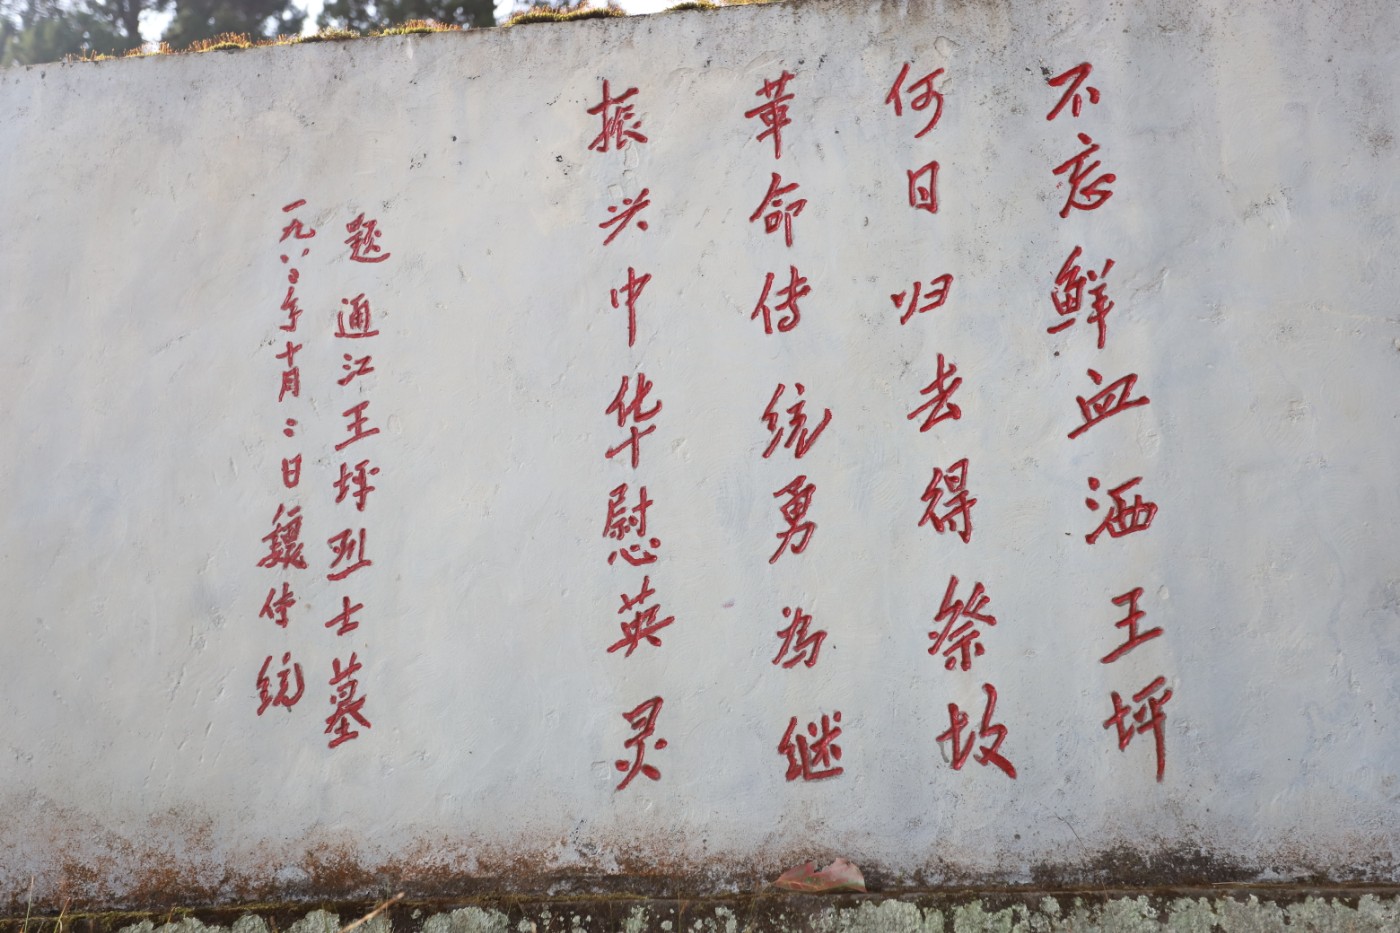 不忘鲜血洒王坪
何日归去得祭坟
革命传统勇为继
振兴中华慰英灵
题通江王坪烈士墓
一九八〇年十月二日魏传统